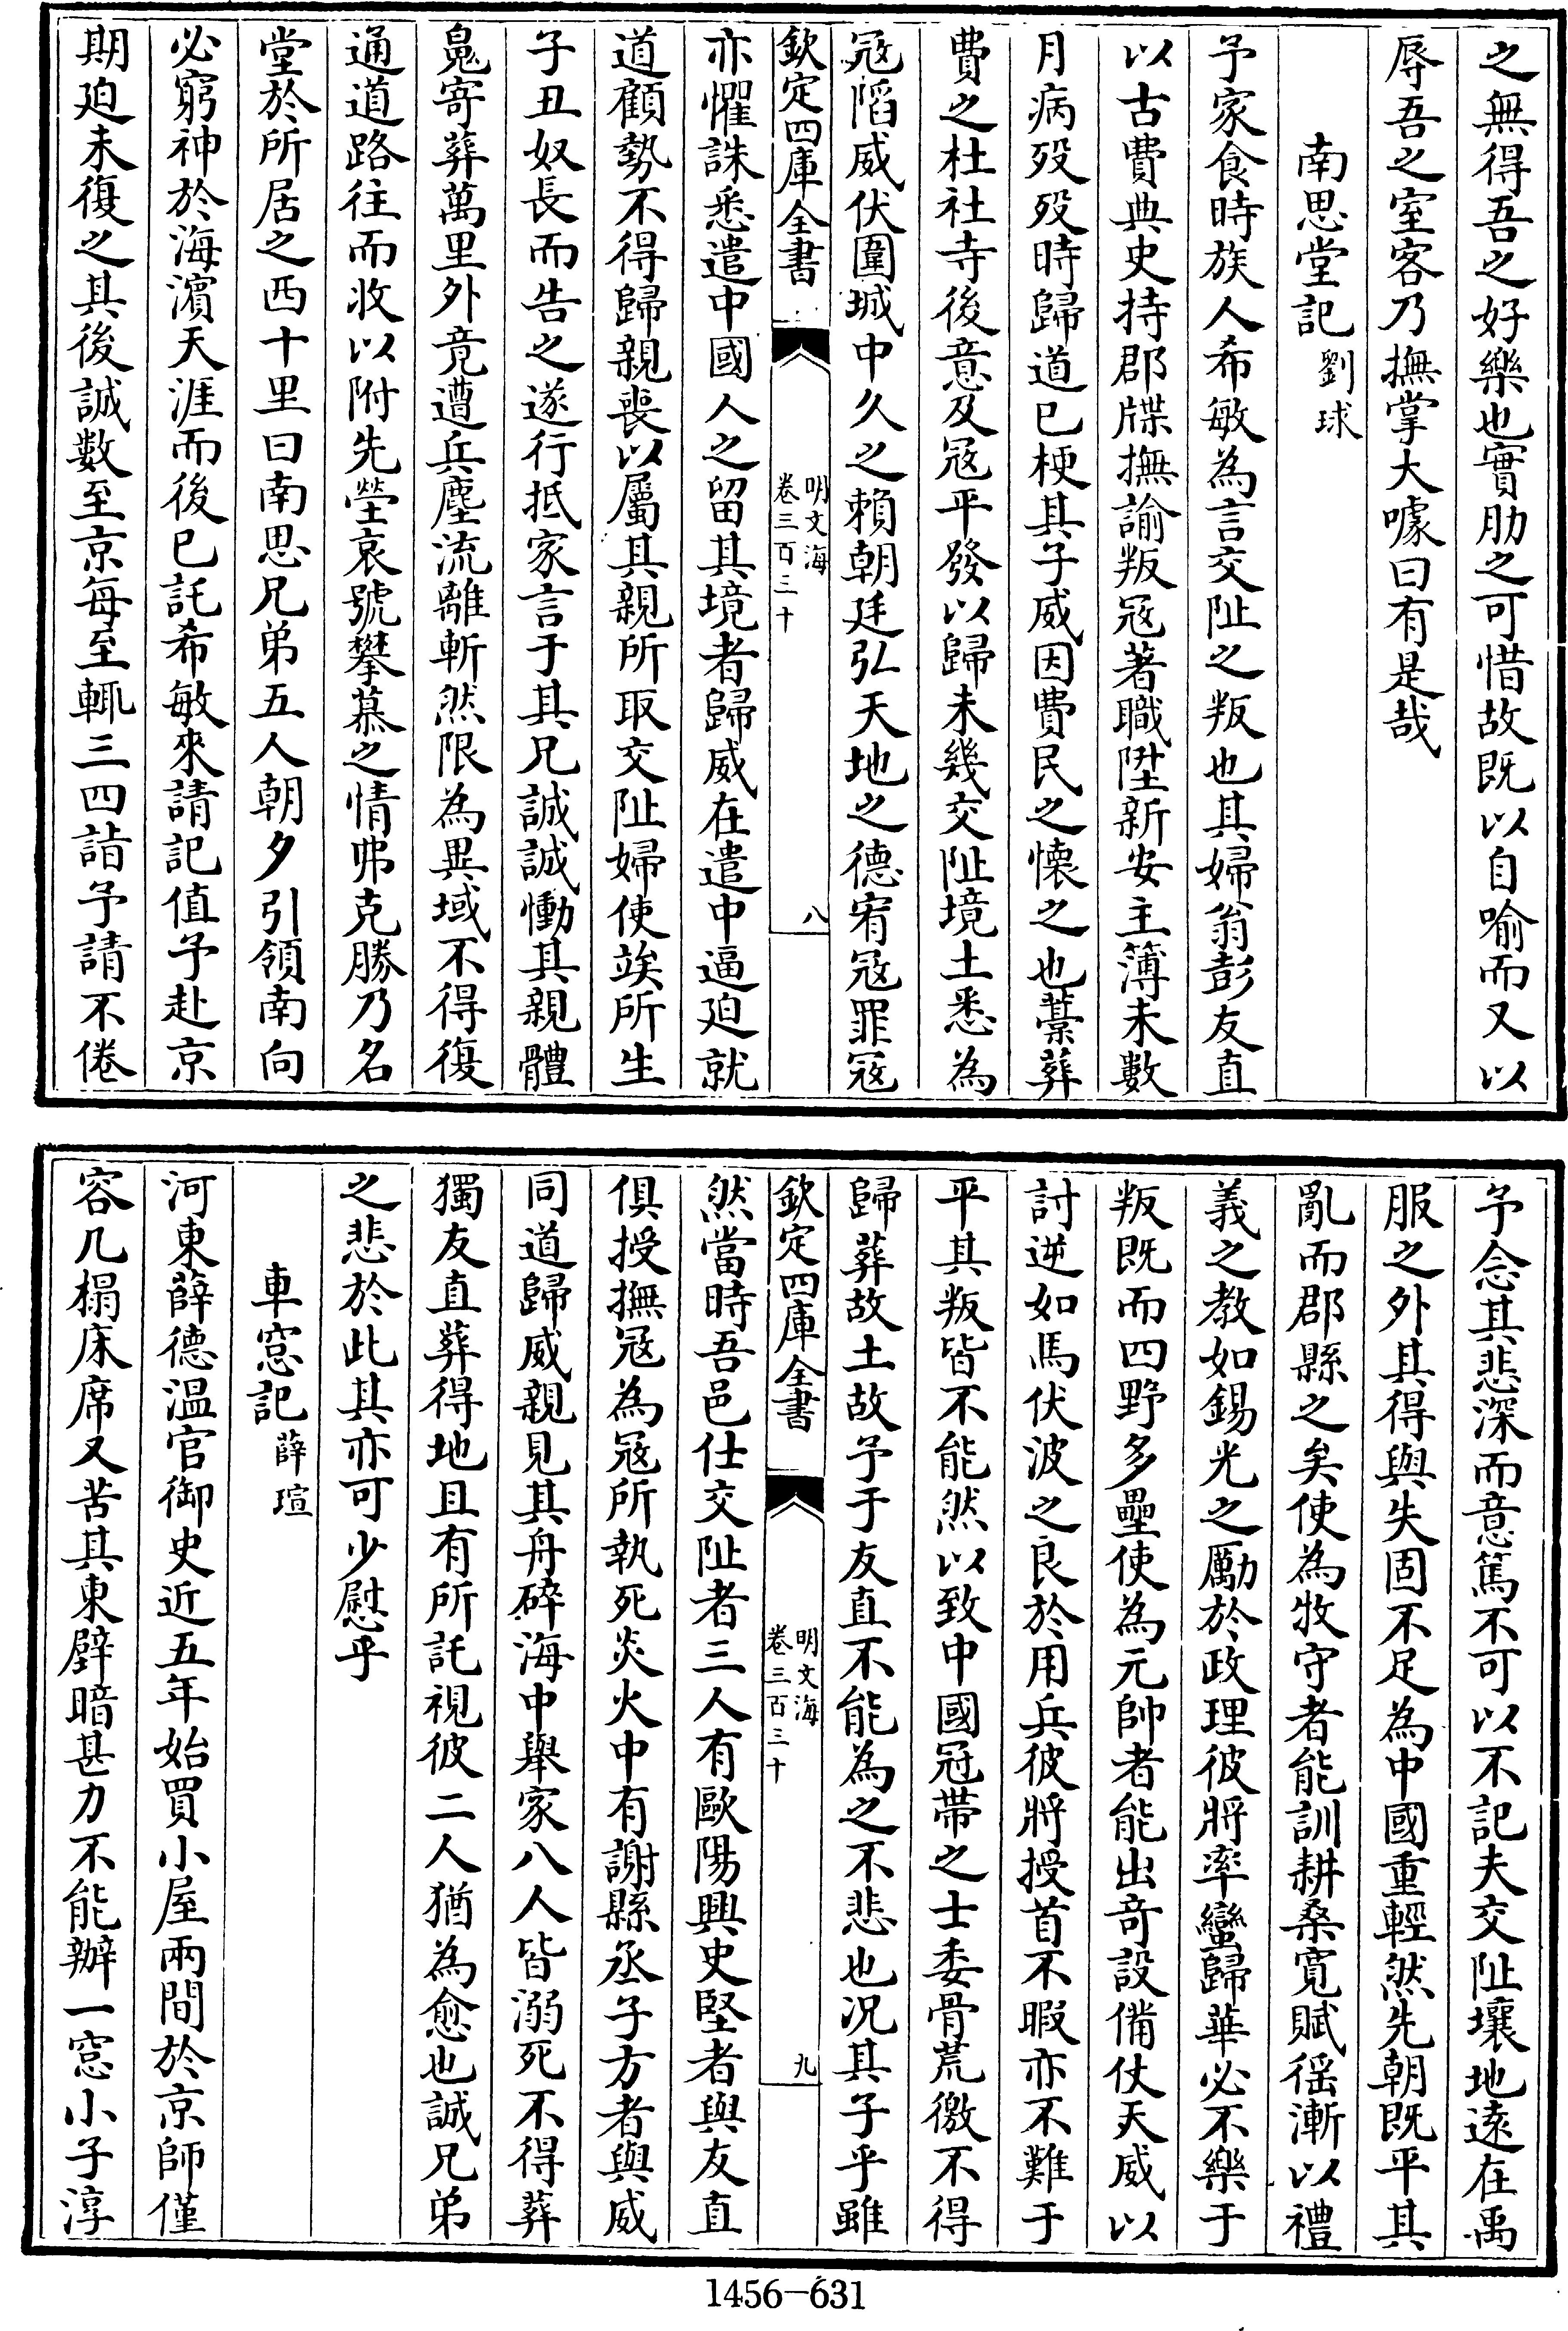 之無得吾之好樂也實肋之可惜故既以自喻而又以
辱吾之室客乃撫掌大噱曰有是哉
南思堂記劉球
予家食時族人希敏為言交阯之叛也其婦翁彭友直
以古費典史持郡牒撫諭叛冦著職陞新安主簿未數
月病歿歿時歸道已梗其子威因費民之懐之也藁葬
費之杜社寺後意及冦平發以歸未幾交阯境土悉為
冦䧟威伏圍城中久之賴朝廷弘天地之德宥冦罪冦
欽定四庫全書
明文海
卷三百三十
八
亦懼誅悉遣中國人之留其境者歸威在遣中逼廹就
道顧勢不得歸親喪以屬其親所取交阯婦使竢所生
子丑奴長而告之遂行抵家言于其兄誠誠慟其親體
鬼寄葬萬里外竟遭兵塵流離斬然限為異域不得復
通道路往而收以附先塋哀號攀慕之情弗克勝乃名
堂於所居之西十里曰南思兄弟五人朝夕引領南向
必窮神於海濱天涯而後已託希敏來請記值予赴京
期廹未復之其後誠數至京每至輒三四詣予請不倦
予念其悲深而意篤不可以不記夫交阯壤地逺在禹
服之外其得與失固不足為中國重輕然先朝既平其
亂而郡縣之矣使為牧守者能訓耕桑寛賦徭漸以禮
義之教如錫光之勵於政理彼將率蠻歸華必不樂于
叛既而四野多壘使為元帥者能出竒設備仗天威以
討逆如馬伏波之良於用兵彼將授首不暇亦不難于
平其叛皆不能然以致中國冠帶之士委骨荒徼不得
歸葬故土故予于友直不能為之不悲也况其子乎雖
欽定四庫全書
明文海
卷三百三十
九
然當時吾邑仕交阯者三人有歐陽興史堅者與友直
俱授撫冦為冦所執死炎火中有謝縣丞子方者與威
同道歸威親見其舟碎海中舉家八人皆溺死不得葬
獨友直葬得地且有所託視彼二人猶為愈也誠兄弟
之悲於此其亦可少慰乎
車窓記薛瑄
河東薛德温官御史近五年始買小屋兩間於京師僅
容几榻床席又苦其東壁暗甚力不能辦一窓小子淳
1456—631